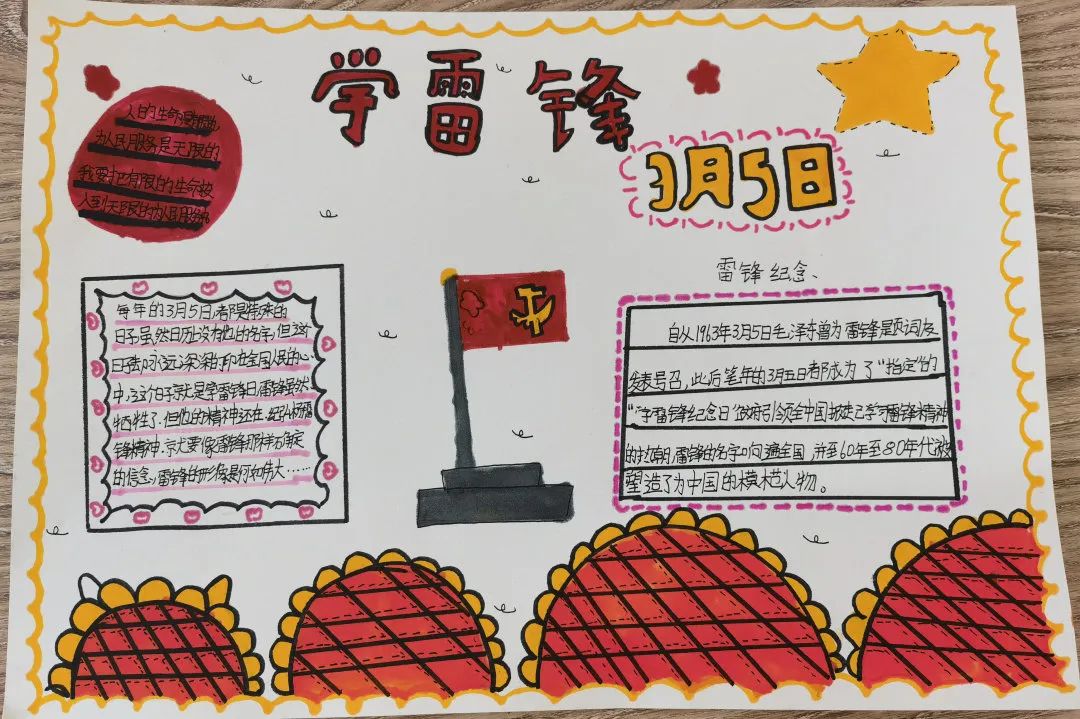 学雷锋
3月5日
人的生命是有限的,
为人民服务是无限的
我要把有限的生命投
入到无限的为人民服务
每年的3月5日,都是特殊的
日子,虽然日历没有他的名字,但这
日子却永远深深的印在全国人民的心
中,这个日子就是学雷锋日,雷锋虽然
牺牲了,但他的精神还在,纪弘扬雷
锋精神,就要像雷锋那样不确定
的信念,雷锋的形像是何和伟大……
雷锋纪念、
自从1963年3月5日毛泽东曾为雷锋题词,友
发表号召,此后笔年的3月五日都成为了“指定”的
“学雷锋纪念日”政府引领全中国掀走已学习雷锋精神
的热潮,雷锋的名字响遍全国,并至60年至80年代被
塑造了为中国的模范人物。